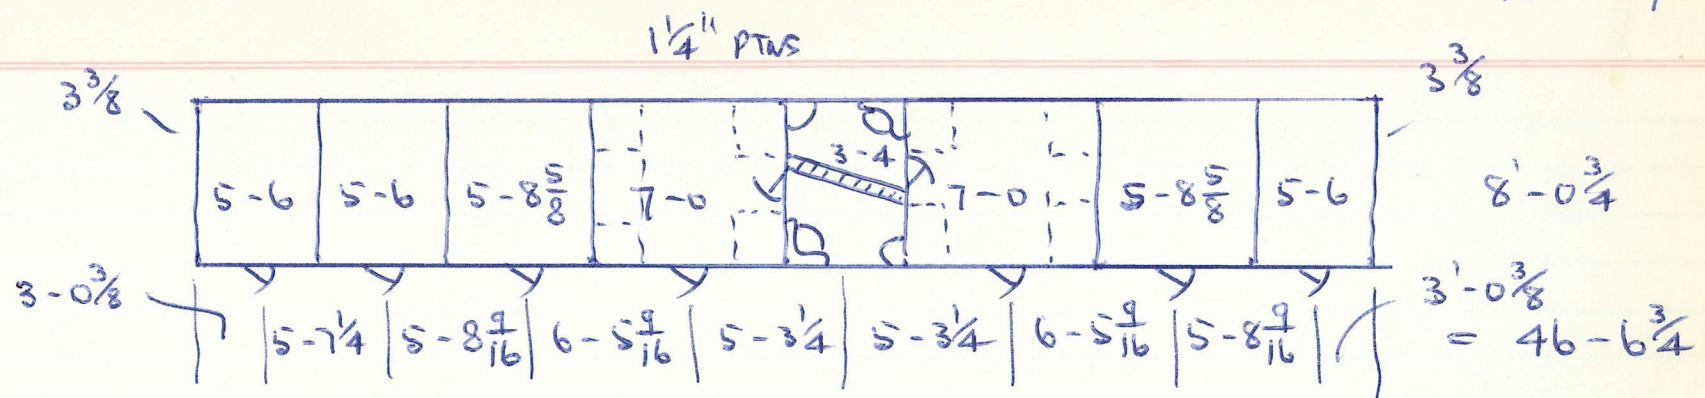 1 1/4" PTNS
3 3/8
3 3/8
5-6 5-6 5-8 5/8 7-0 3-4 7-0 5-8 5/8 5-6 8'-0 3/4
3-0 3/8 3'-0 3/8
5-7 1/4 5-8 9/16 6-5 9/16 5-3 1/4 5-3 1/4 6-5 9/16 5-8 9/16 = 46-6 3/4